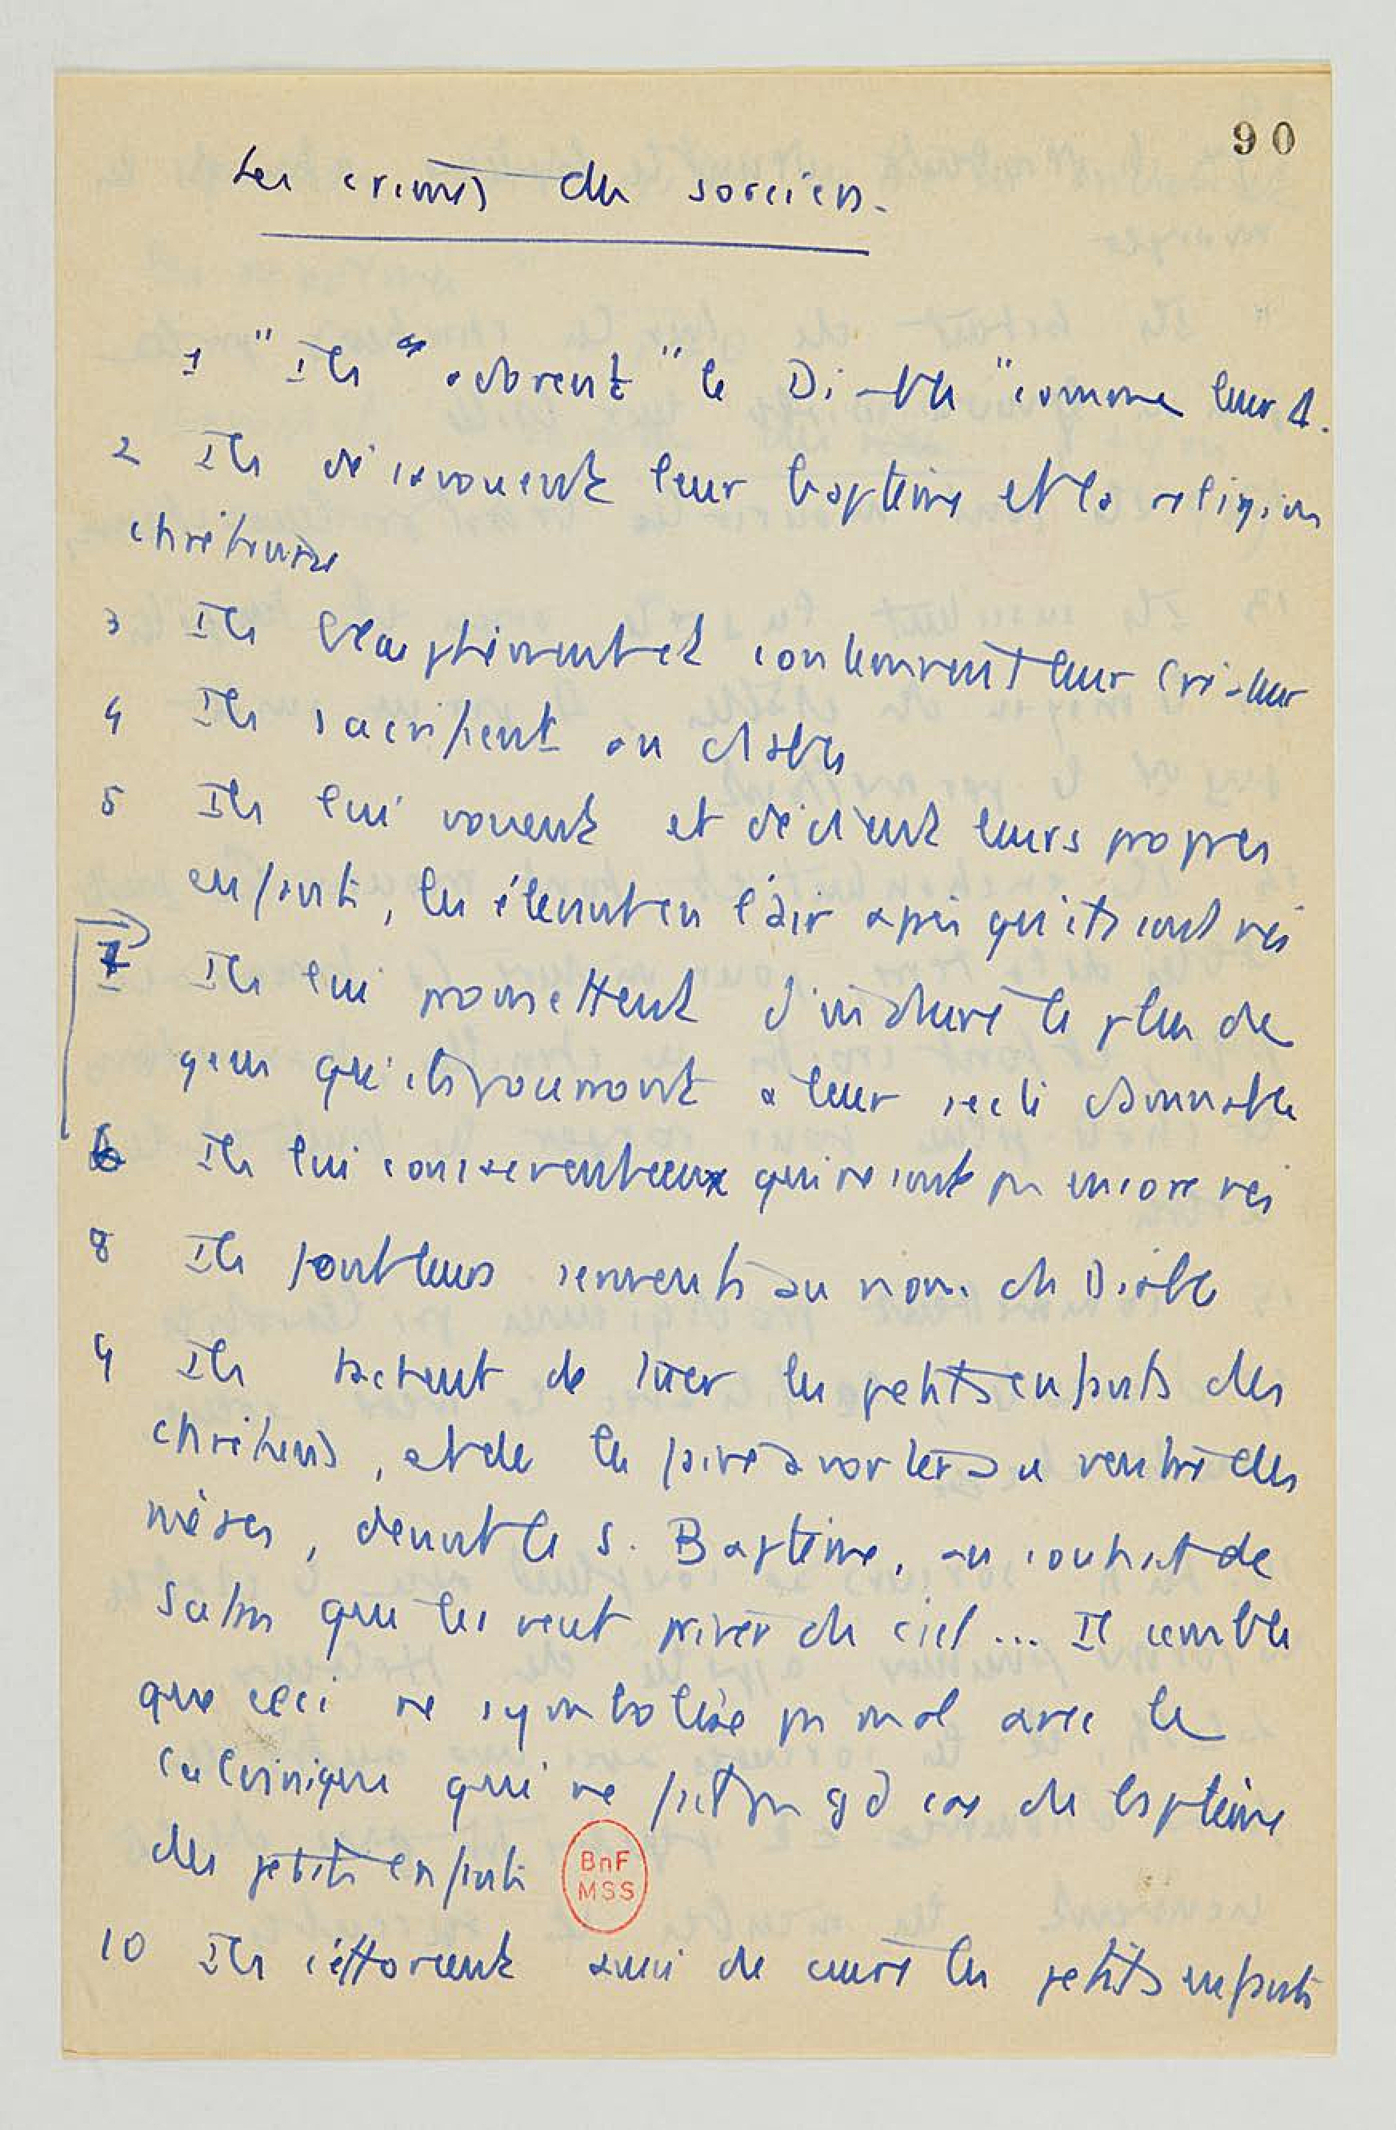 90
Les crimes des sorciers.
1 " Ils " adorent " le Diable " comme leur d.
2 Ils désavouent leur baptême et la religion
chrétienne
3 Ils blasphèment et contemnent leur Créateur
4 Ils sacrifient au diable
5 Ils lui vouent et dédient leurs propres
enfants, les élevant en l'air après qu'ils sont nés
7 Ils lui promettent d'induire le plus de
gens qu'ils pourront à leur secte damnable
6 Ils lui consacrent ceux qui ne sont pas encore nés
8 Ils font leurs serments au nom du Diable
9 Ils tachent de tuer les petits enfants des
chrétiens, et de les faire avorter au ventre des
mères, devant le S. Baptême, au souhait de
Satan qui les veut priver du ciel ... Il semble
que ceci ne symbolise pas mal avec les
calviniques qui ne font pas gd cas du baptême
des petits enfants
BnF
MSS
10 Ils s'efforcent aussi de cuire les petits enfants